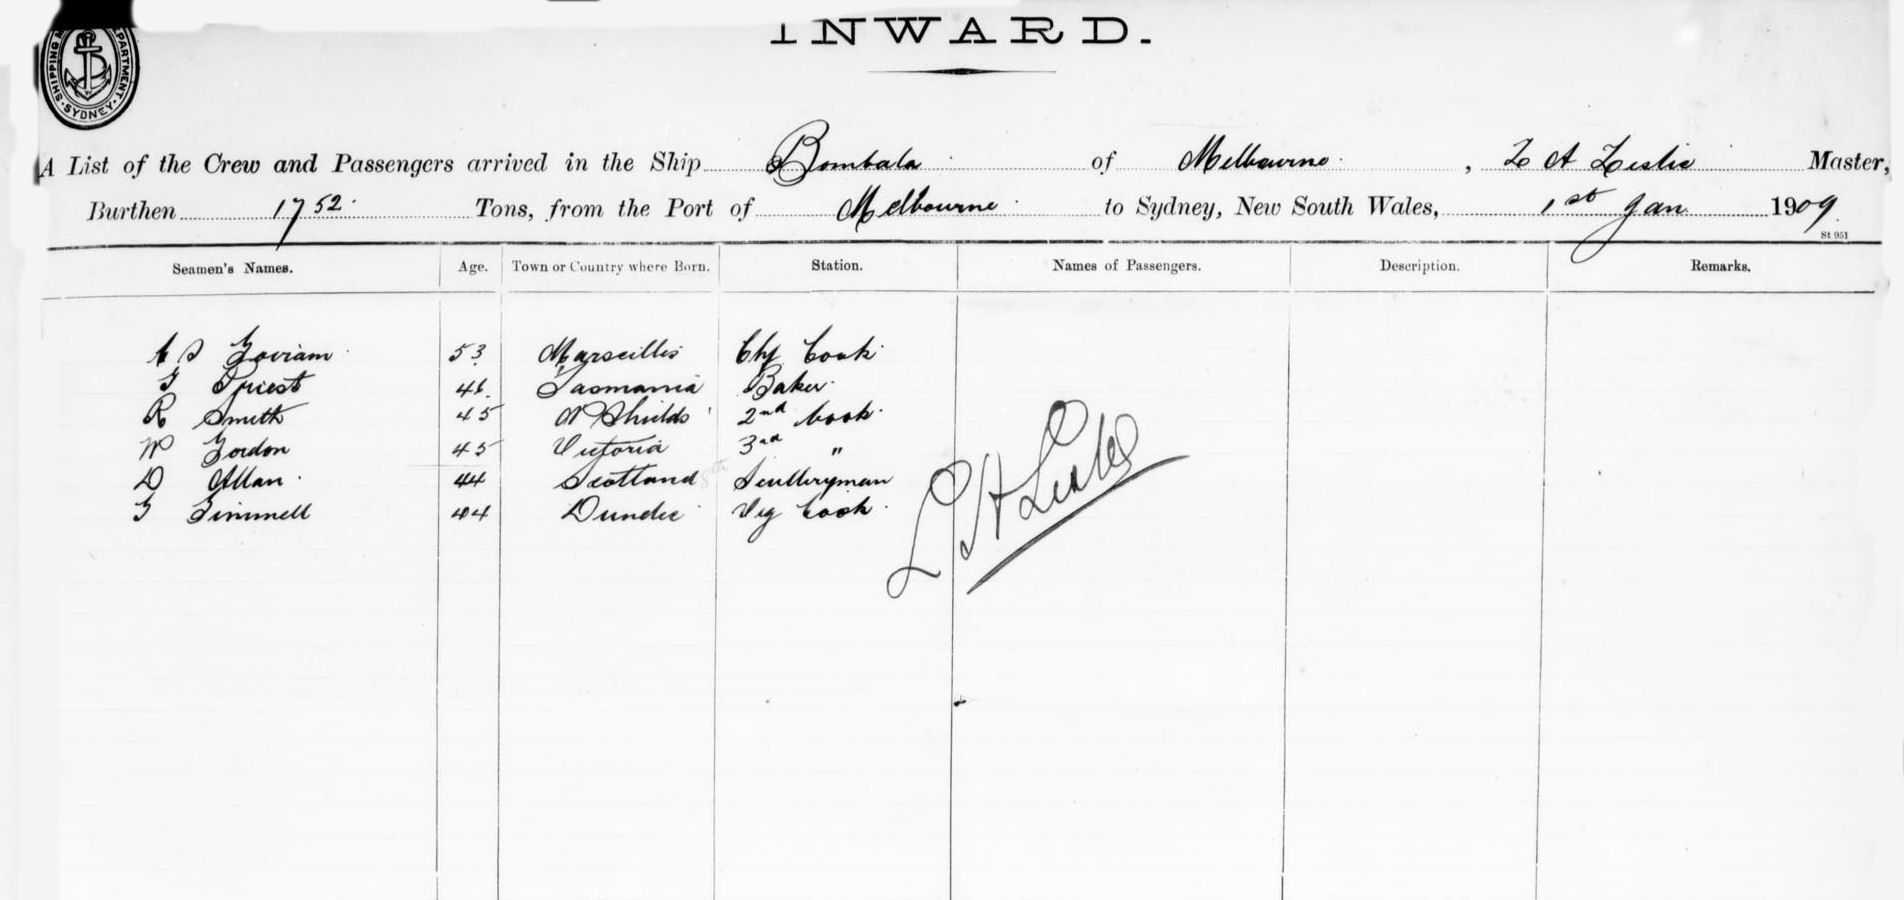 INWARD.
SHIPPING DEPARTMENT SYDNEY
A List of the Crew and Passengers arrived in the Ship Bombala of Melbourne, L A Leslie Master,
Burthen 1752 Tons, from the Port of Melbourne to Sydney, New South Wales, 1st Jan 1909
St 951
Seamen's Names. Age. Town or Country where Born. Station. Names of Passengers. Description. Remarks.
53 Marseilles Chf Cook
Priest 46 Tasmania Baker
R Smith 45 N Shields 2nd Cook
W Gordon 45 Victoria 3rd "
D Allan 44 Scotland Scullryman
G Gimmell 44 Dundee Veg Cook
L A Leslie